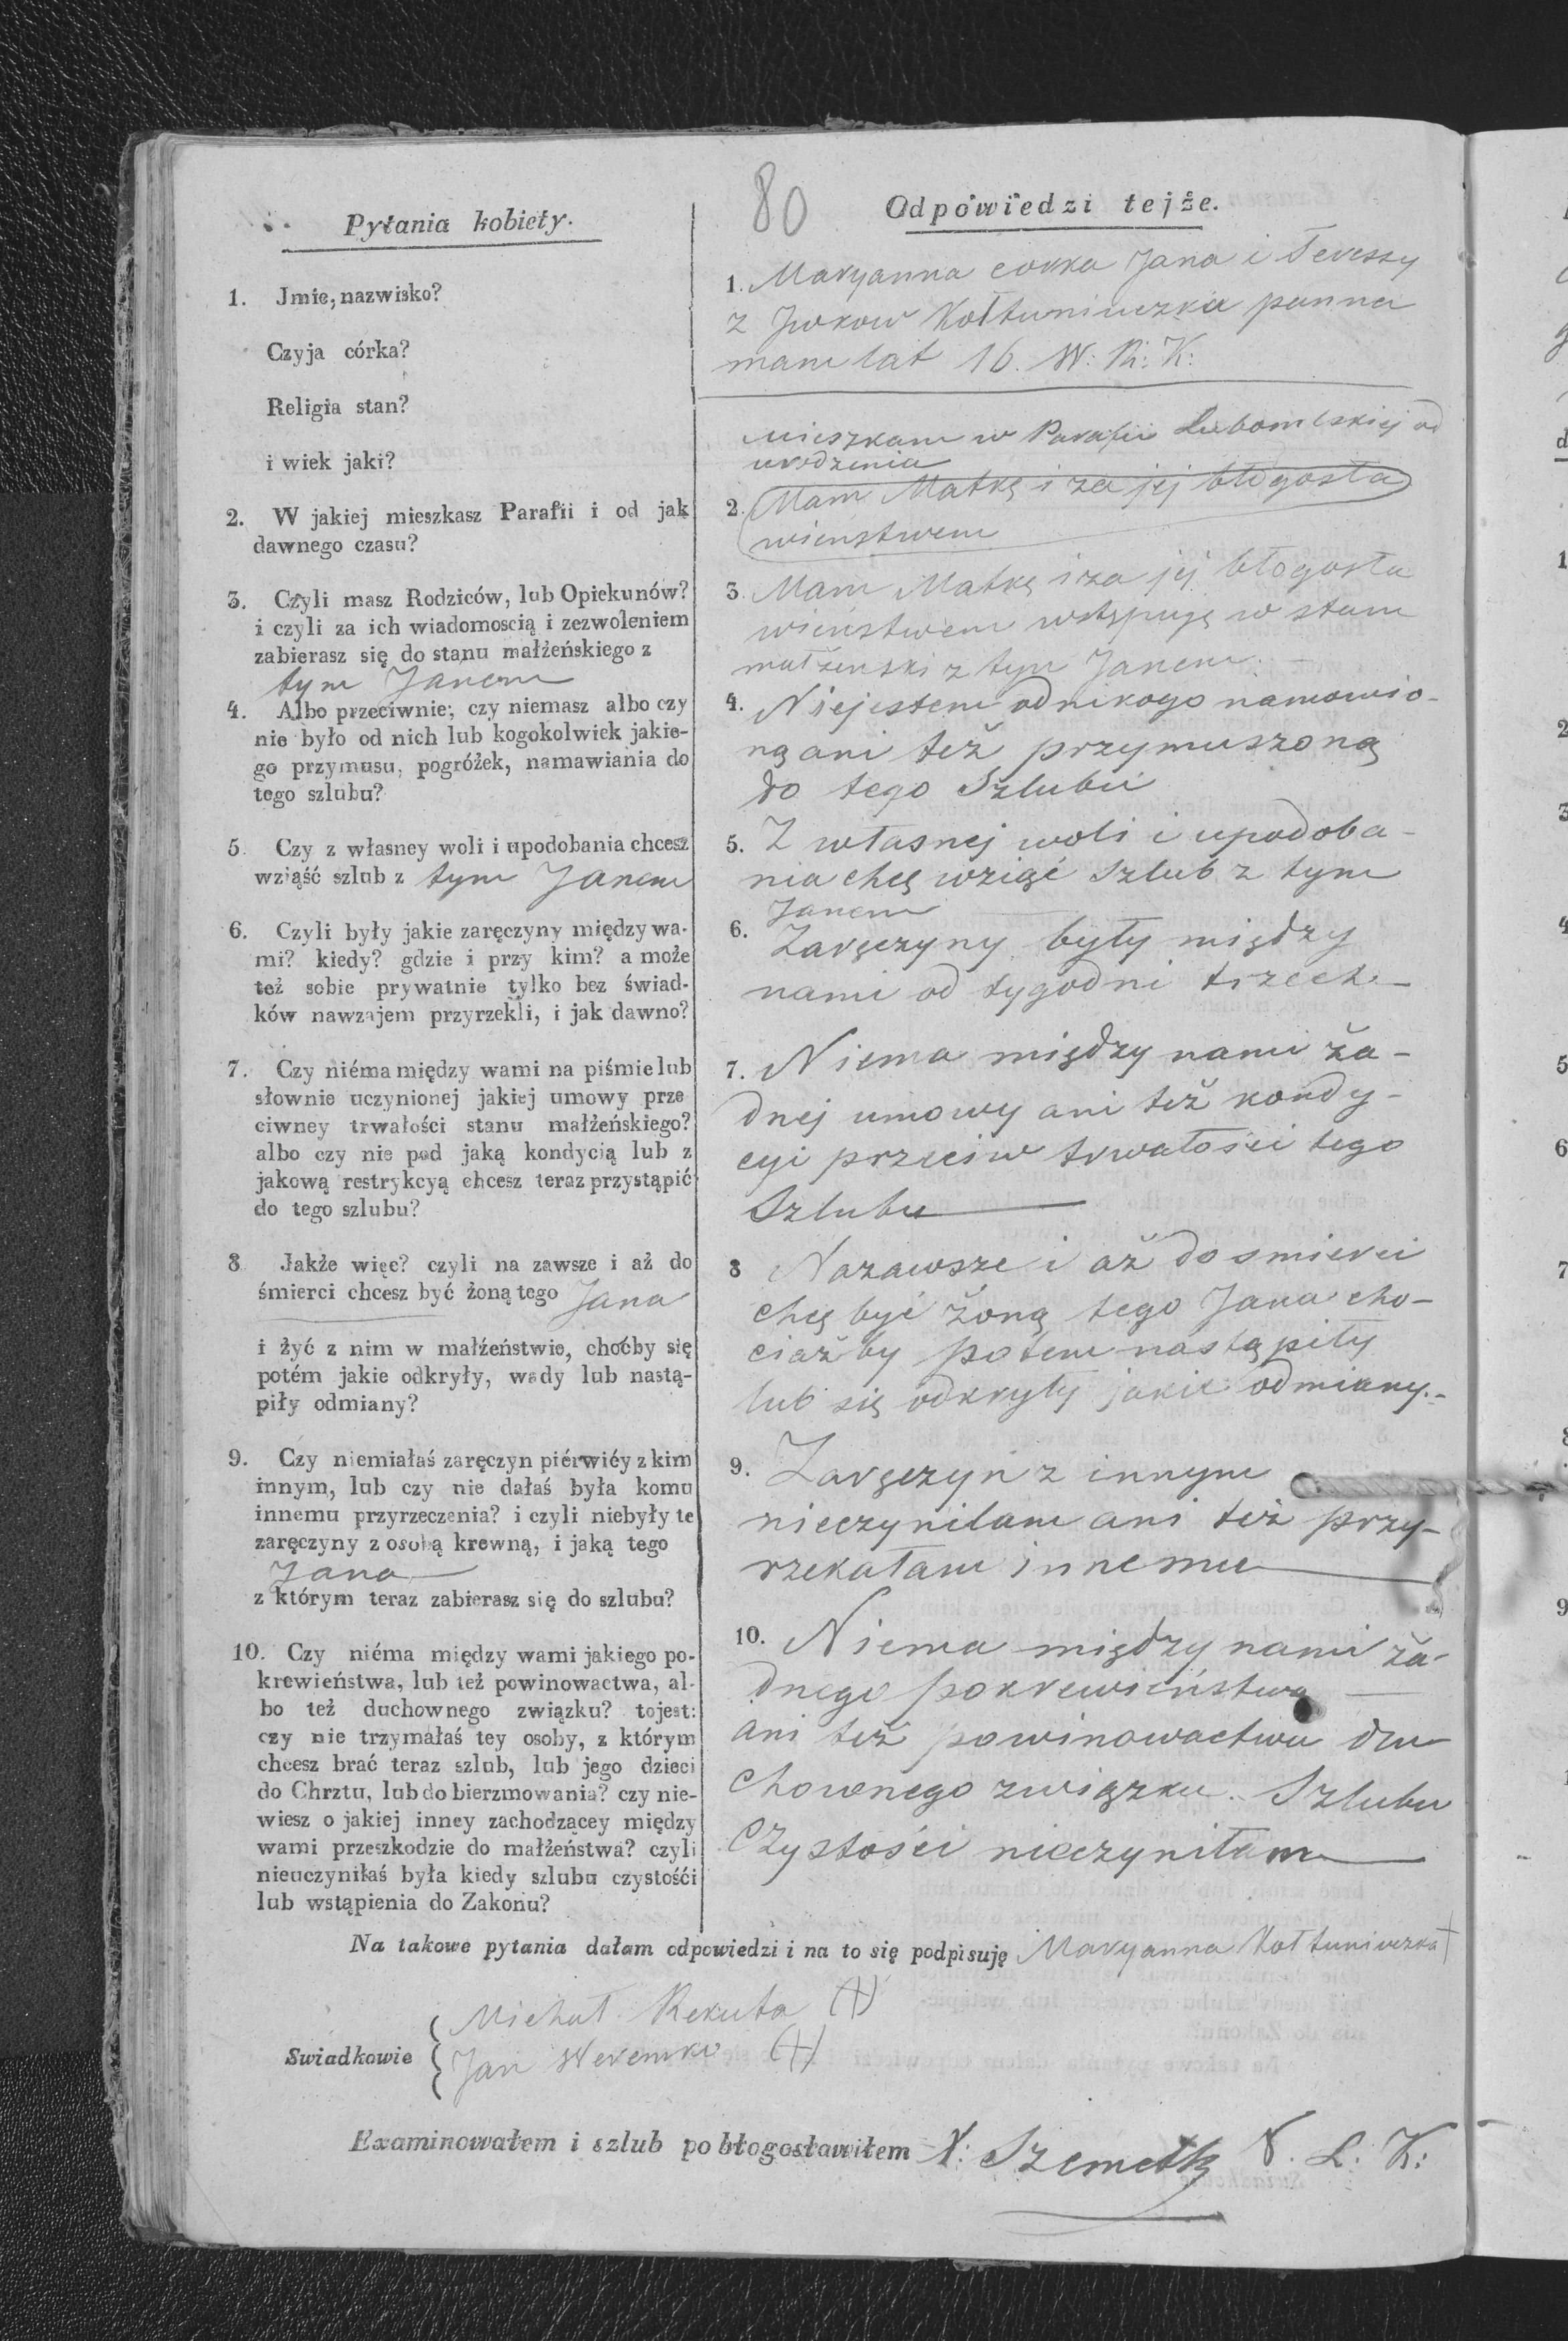 80
Pytania kobiety.
1. Jmie, nazwisko?
Czyja córka?
Religia stan?
i wiek jaki?
2. W jakiej mieszkasz Parafii i od jak
dawnego czasu?
3. Czyli masz Rodziców, lub Opiekunów?
i czyli za ich wiadomoscią i zezwoleniem
zabierasz się do stanu małżeńskiego z
tym Janem
4. Albo przeciwnie; czy niemasz albo czy
nie było od nich lub kogokolwiek jakie-
go przymusu, pogróżek, namawiania do
tego szlubu?
5. Czy z własney woli i upodobania chcesz
wziąść szlub z tym Janem
6. Czyli były jakie zaręczyny między wa-
mi? kiedy? gdzie i przy kim? a może
też sobie prywatnie tylko bez świad-
ków nawzajem przyrzekli, i jak dawno?
7. Czy niéma między wami na piśmie lub
słownie uczynionej jakiej umowy prze
ciwney trwałości stanu małżeńskiego?
albo czy nie pod jaką kondycią lub z
jakową restrykcyą chcesz teraz przystąpić
do tego szlubu?
8. Jakże więc? czyli na zawsze i aż do
śmierci chcesz być żoną tego Jana
i żyć z nim w małżeństwie, choćby się
potém jakie odkryły, wady lub nastą-
piły odmiany?
9. Czy niemiałaś zaręczyn piérwiéy z kim
innym, lub czy nie dałaś była komu
innemu przyrzeczenia? i czyli niebyły te
zaręczyny z osobą krewną, i jaką tego
Jana
z którym teraz zabierasz się do szlubu?
10. Czy niéma między wami jakiego po-
krewieństwa, lub też powinowactwa, al-
bo też duchownego związku? tojest:
czy nie trzymałaś tey osoby, z którym
chcesz brać teraz szlub, lub jego dzieci
do Chrztu, lub do bierzmowania? czy nie-
wiesz o jakiej inney zachodzącey między
wami przeszkodzie do małżeństwa? czyli
nieuczyniłaś była kiedy szlubu czystośći
lub wstąpienia do Zakonu?
Odpowiedzi tejże.
1. Maryanna corka Jana i Teressy
z Kołtuniuczka panna
mam lat 16. W: R: K:
mieszkam w Parafii Lubomlskiej od
urodzenia
2. Mam Matkę i za jej błogosła
wienstwem
3. Mam Matkę i za jej błogosła
wieństwem wstępuję w stan
małżenski z tym Janem. –
4. Niejestem od nikogo namowio-
ną ani też przymuszoną
do tego Szlubu
5. Z własnej woli i upodoba-
nia chcę wziąć Szlub z tym
Janem
6. Zaręczyny były między
nami od tygodni trzech –
7. Niema między nami ża-
dnej umowy ani też kondy-
cyi przeciw trwałości tego
Szlubu
8 Nazawsze i aż do smierci
chcę być żoną tego Jana cho-
ciażby potem nastąpiły
lub się odkryły jakie odmiany.-
9. Zaręczyn z innym
nieczyniłam ani też przy-
rzekałam innemu
10. Niema między nami ża-
dnego pokrewieństwa
ani też powinowactwa du
chownego związku. Szlubu
Czystości nieczyniłam
Na takowe pytania dałam odpowiedzi i na to się podpisuję Maryanna Kołtuniuczka +
Swiadkowie
Michał Rekuta (+)
Jan Weremko (+)
Examinowałem i szlub pobłogosławiłem X: L: K: